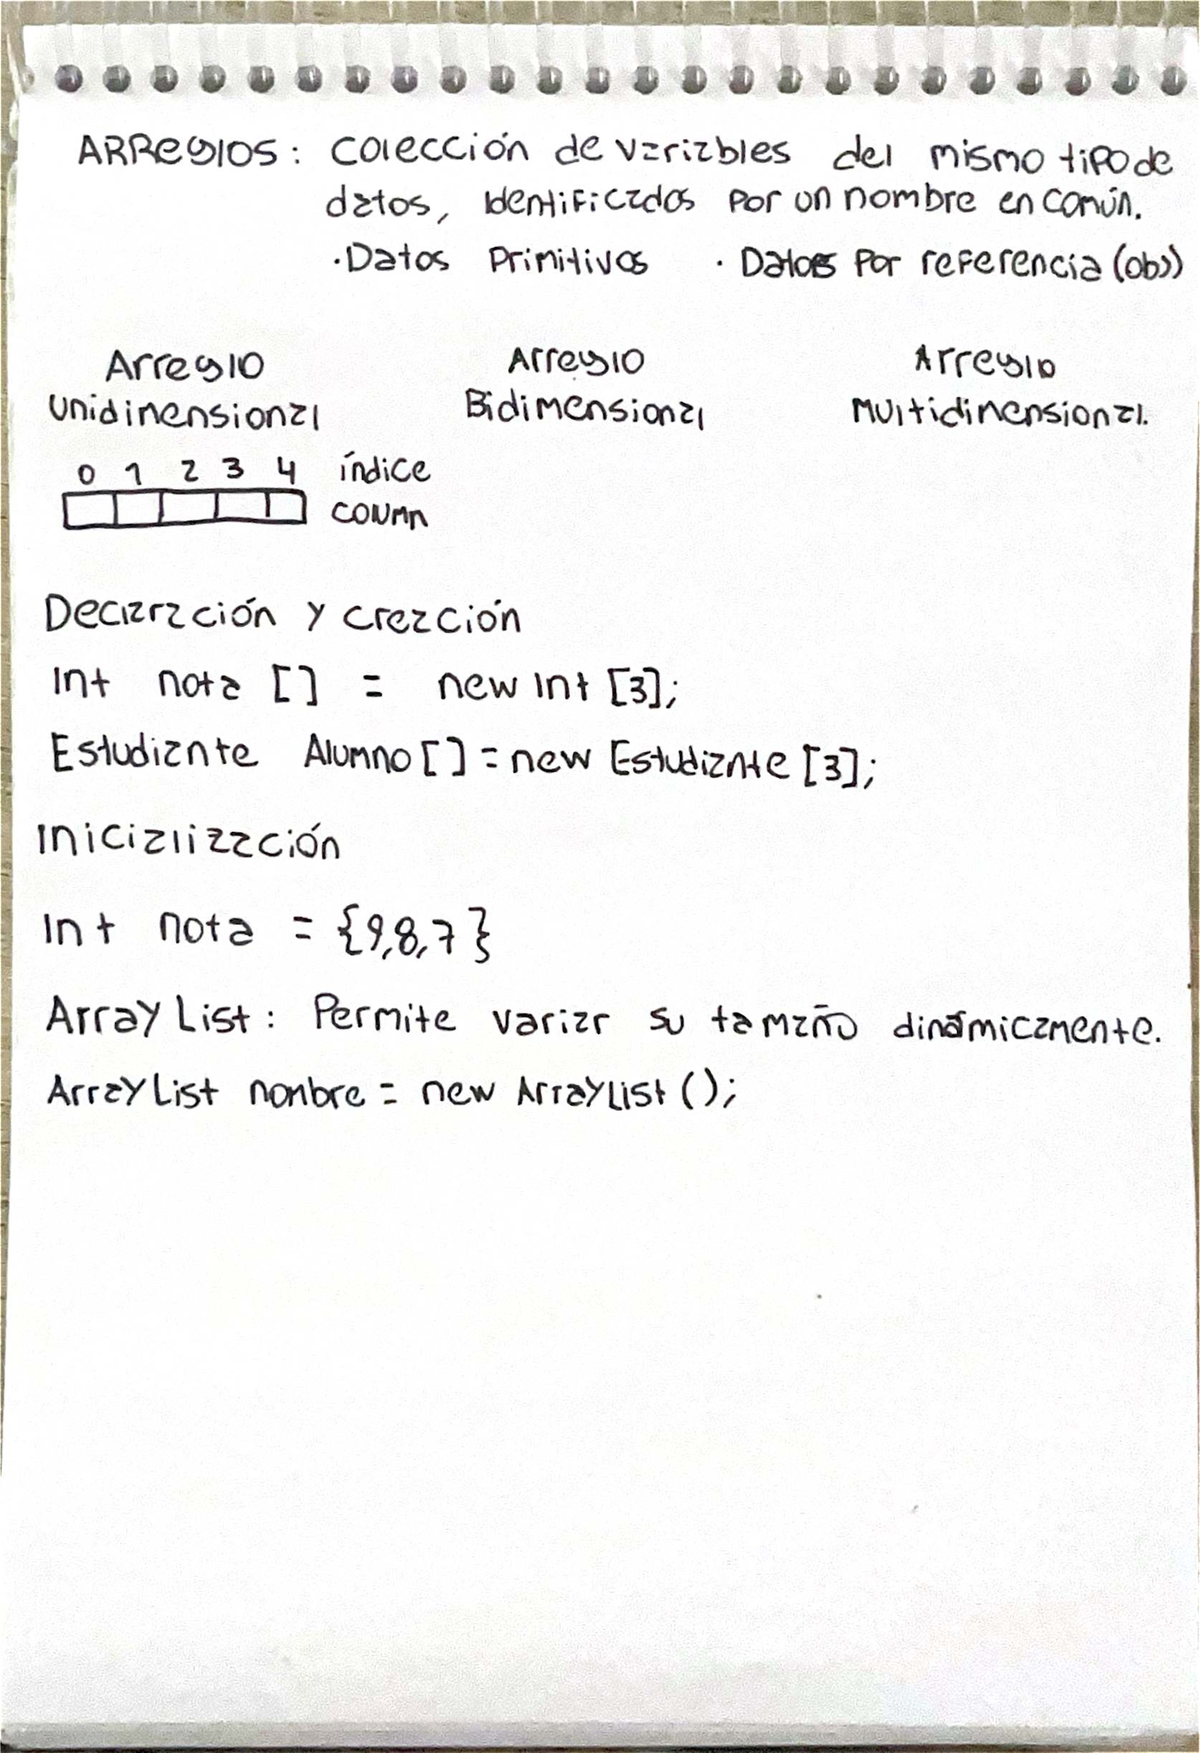 ARREGlOS: colección de variables del mismo tipo de
datos, identificados por un nombre en común.
·Datos Primitivos · Datos Por referencia (obj)
Arreglo Arreglo Arreglo
Unidimensional Bidimensional Multidimensional.
0 1 2 3 4 índice
column
Declaración y creación
Int nota [] = new int [3];
Estudiante Alumno [] = new Estudiante [3];
Inicialización
Int nota = {9,8,7}
Array List: Permite variar su tamaño dinámicamente.
Array List nombre = new ArrayList ();